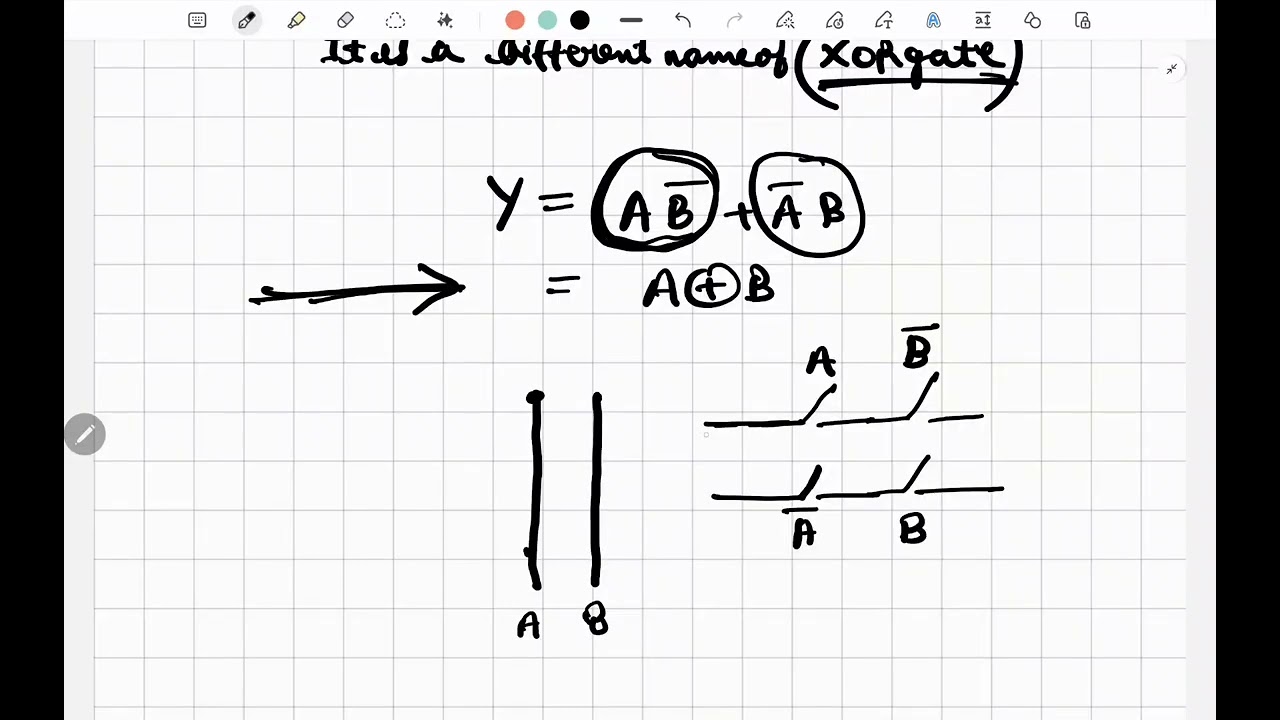 It is a different name of (XOR gate)
Y = A B̅ + A̅ B
= A ⊕ B
A B̅
A̅ B
A B